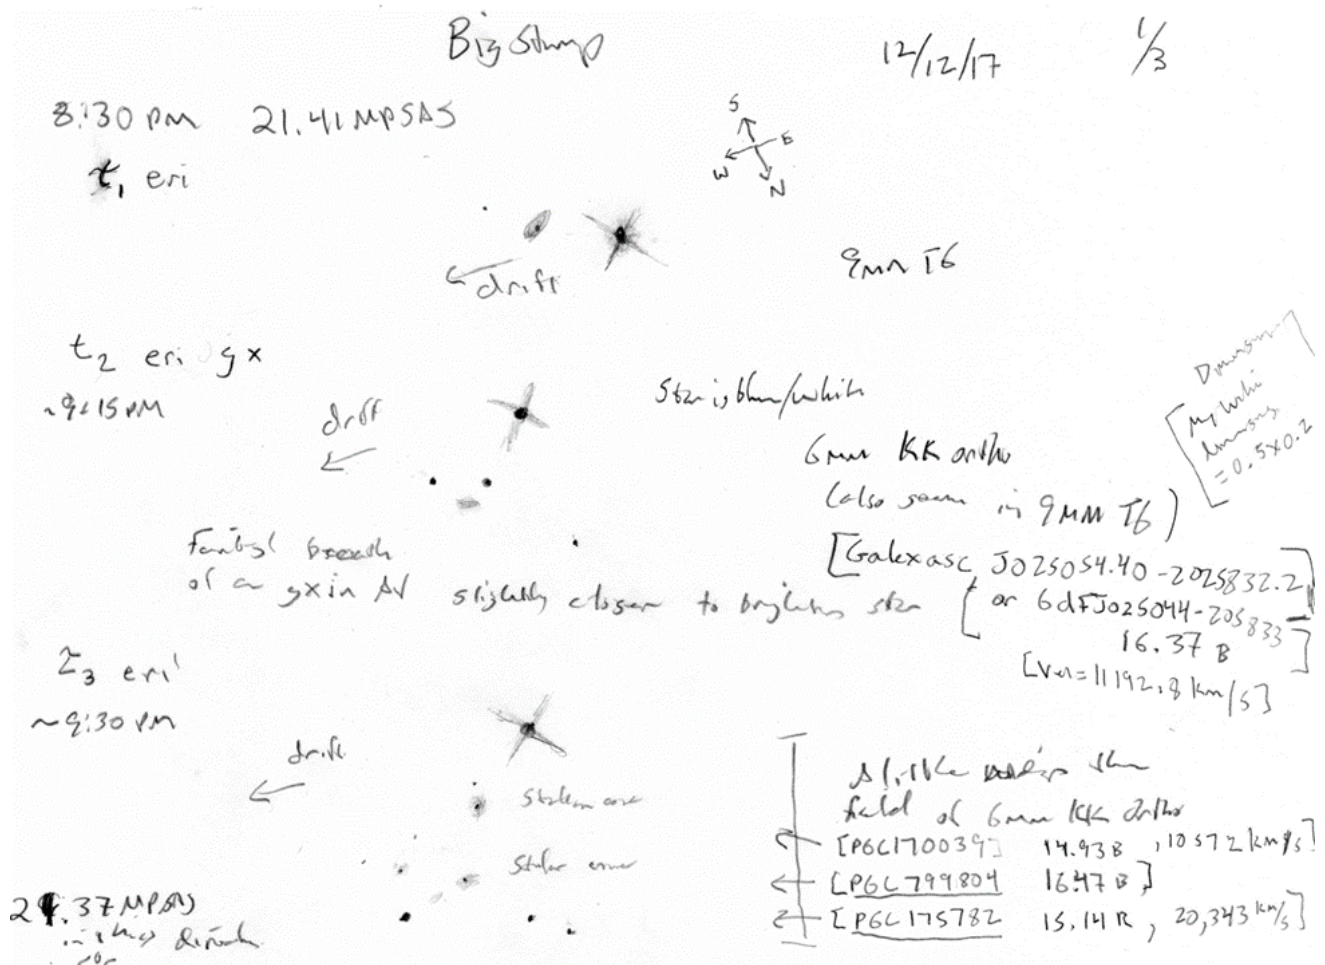 Big Stump 12/12/17 1/3
8:30 PM 21.41 MPSAS
S
E
W
N
t1 eri
9mm T6
drift
t2 eri gx
~9:15 PM
drift
Star is blue/white
6mm KK ortho
(also seen in 9mm T6)
= 0.5x0.2
Faintest breath
of a gx in AV slightly closer to brightest star
[Galexasc J025054.40-2025832.2]
or 6dFJ025044-205833
16.37 B
[Vel=11192.8 km/s]
τ3 eri
~9:30 PM
drift
Stellar core
Stellar core
field of 6mm KK Ortho
[PGC170039] 14.93B, 10572 km/s]
[PGC 799804 16.47 B]
[PGC 175782 15.14 R, 20,343 km/s]
21.37 MPSAS
in this direction